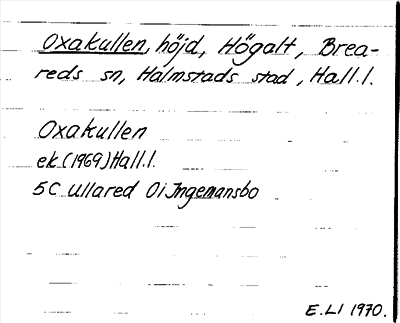 Oxakullen, höjd, Högalt, Brea-
reds sn, Halmstads stad, Hall.l.
Oxakullen
ek (1969) Hall.l.
5C Ullared 0i Ingemansbo
E.Ll 1970.